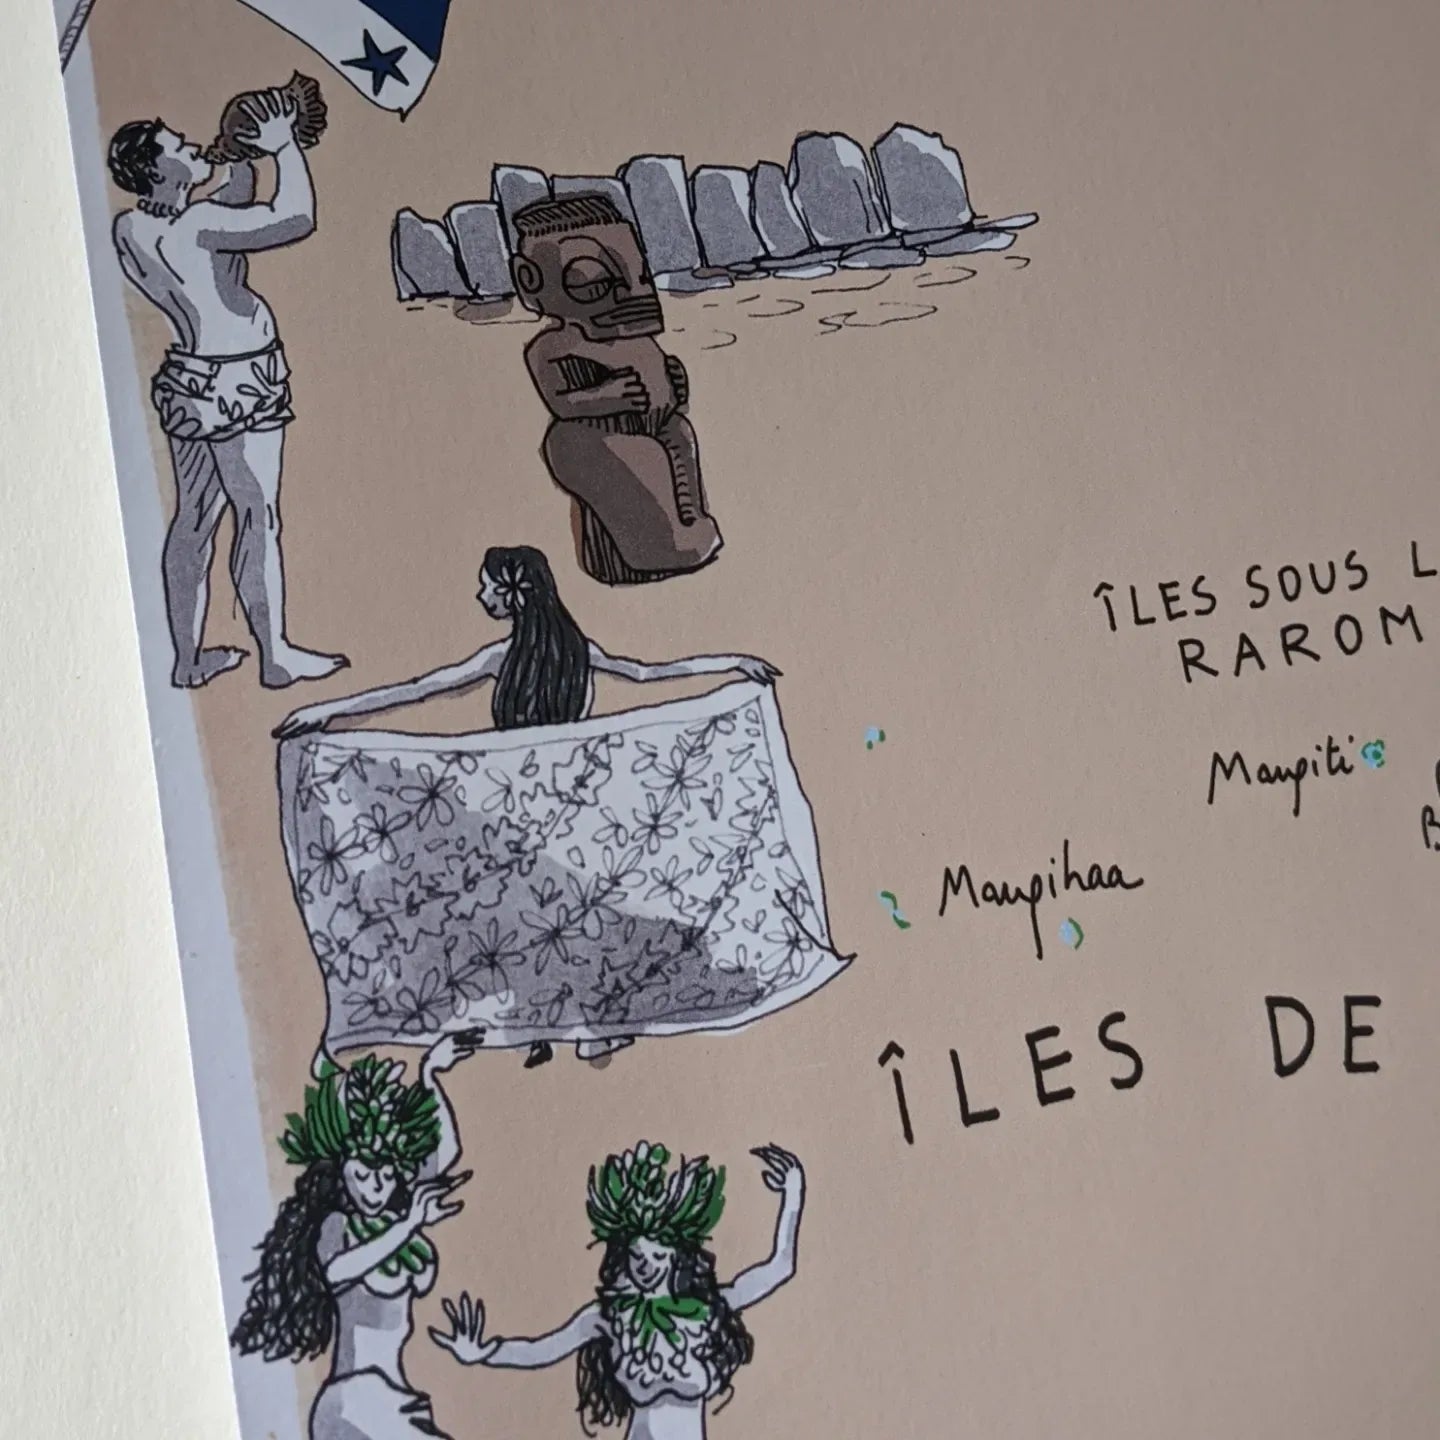 ÎLES SOUS L
RAROM
Maupiti
B
Maupihaa
ÎLES DE